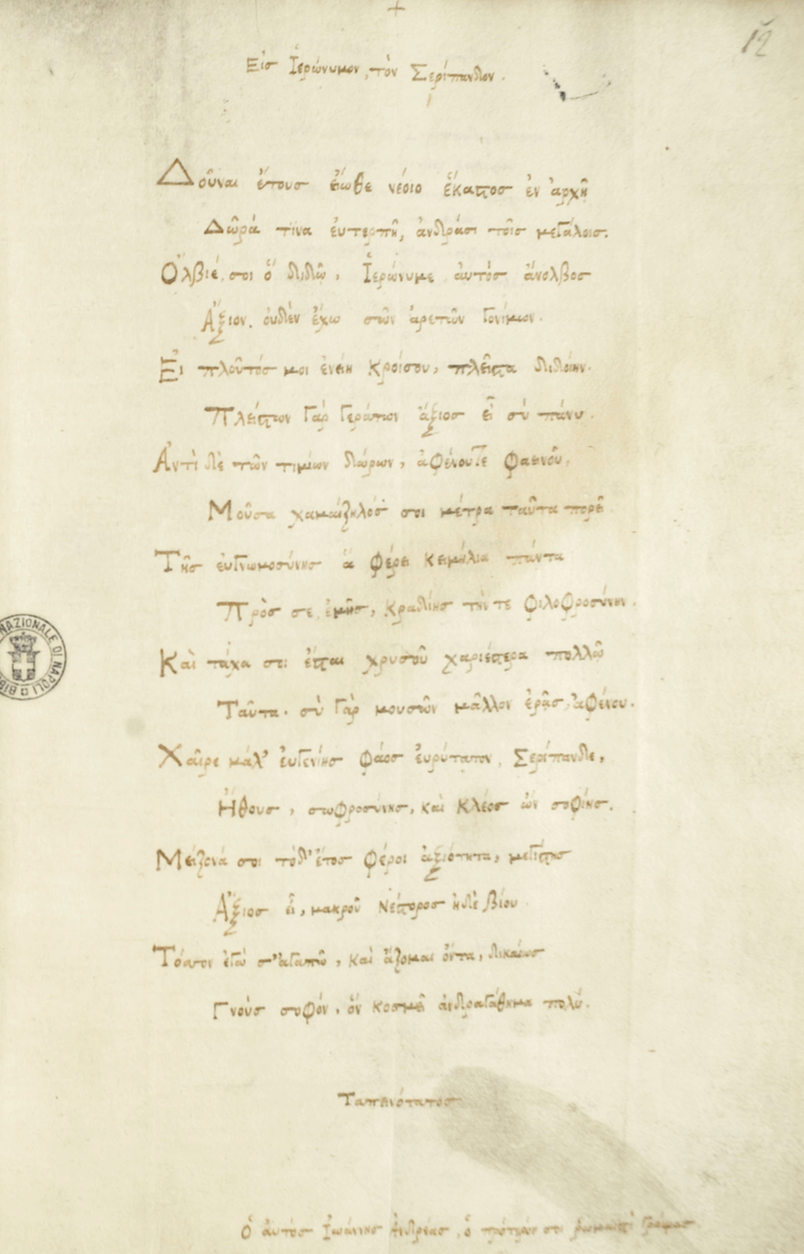 +
12
Εἰς Ἱερώνυμον, τὸν Σερίπανδον.
Δοῦναι ἔτους εἴωθε νέοιο ἕκαστος ἐν ἀρχῇ
Δῶρά τινα ἐυτερπῆ, ἀνδράσι τοῖς μεγάλοις.
Ὄλβιέ, σοι ὃ διδῶ, Ἱερώνυμε αὐτὸς ἄνολβος
Ἄξιον, ουδὲν ἔχω σῶν ἀρετῶν γονίμων.
Εἰ πλοῦτός μοι ἐνείη Κροίσου, πλεῖστα διδοίην.
Πλείστων γὰρ γεράων ἄξιος εἶ σὺ πάνυ.
Ἀντὶ δὲ τῶν τιμίων δώρων, ἀφένου τε φαεινοῦ,
Μοῦσα χαμαίζηλός σοι μέτρα ταῦτα πορεῖ
Τῆς ἐυγνωμοσύνης ἃ φέρει κειμήλια πάντα
Πρὸς σε ἐμῆς, κραδίης τήν τε φιλοφροσύνην.
Καὶ τάχα σοι ἔσται χρυσοῦ χαριέστερα πολλῶ
Ταῦτα. σὺ γὰρ μουσῶν μᾶλλον ἐρᾷς, ἀφένου.
Χαῖρε μάλ' ἐυγενίης φάος ἐυρύτατον, Σερίπανδε,
Ἤθους, σωφροσύνης, καὶ κλέος ὢν σοφίης.
Μείζονά σοι τόδ' ἔτος φέροι ἀξιότητα, μεγίστης
Ἄξιος εἶ, μακροῦ Νέστορος ἠδὲ βίου
σ' ἀγαπῶ, καὶ ἅζομαι ὄντα, δικαίως
Γνοὺς σοφόν, ὃν κοσμεῖ ἀνδραγάθημα πολύ.
Ταπεινότατος
Ὁ αὐτὸς Ἰωάννης Ἀνδρέας, ὁ
NAZIONALE DI NAPOLI